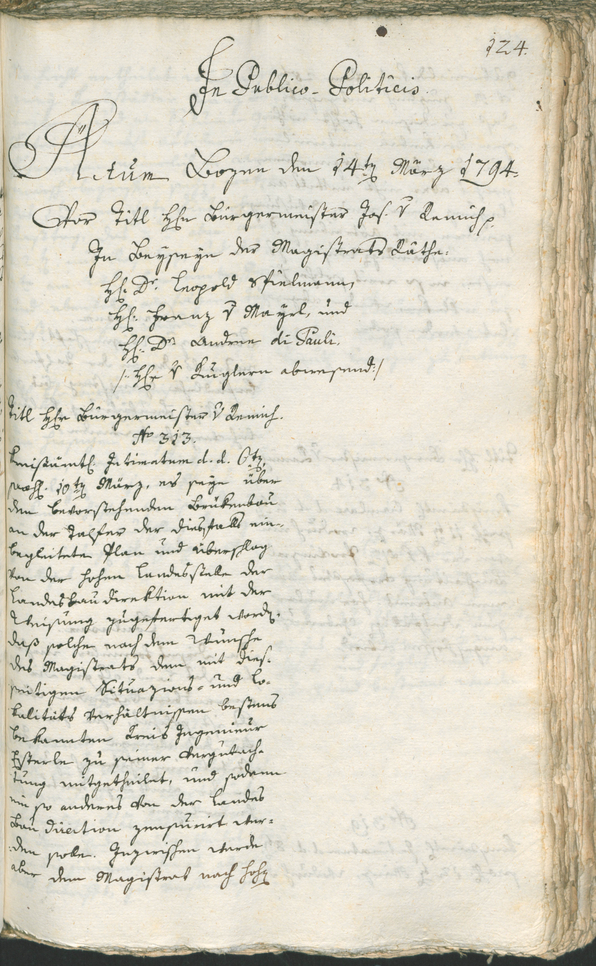 124.
In Publico-Politicis
Actum Bozen den 14ten März 1794.
Vor Titl Hrn Bürgermeister Jos. v Remich
In Beyseyn der Magistrats Räthe:
H. Dr. Leopold Spielmann,
H. Franz v Mayrl, und
H. Dr. Andree di Pauli.
/: Hr v Kuglern abwesend :/
Titl Hr Bürgermeister v Remich.
No 313.
Kreisämtl. Intimatum d. d. 6ten
praes. 10ten März, es seye über
den bevorstehenden Brükenbau
an der Talfer der diesfalls ein-
begleitete Plan und Überschlag
von der hohen Landesstelle der
Landesbaudirektion mit der
Weisung zugefertiget word.
daß solche nach dem Wunsche
des Magistrats dem mit dies-
seitigen Situazions- und Lo-
kalitäts Verhältnissen bestens
bekannten Kreis Ingenieur
Esterle zu seiner Begutach-
tung mitgetheilet, und sodann
ein so anderes von der Landes
Bau Direction zensurirt wer-
den solle. Inzwischen werde
aber dem Magistrat nach hohe